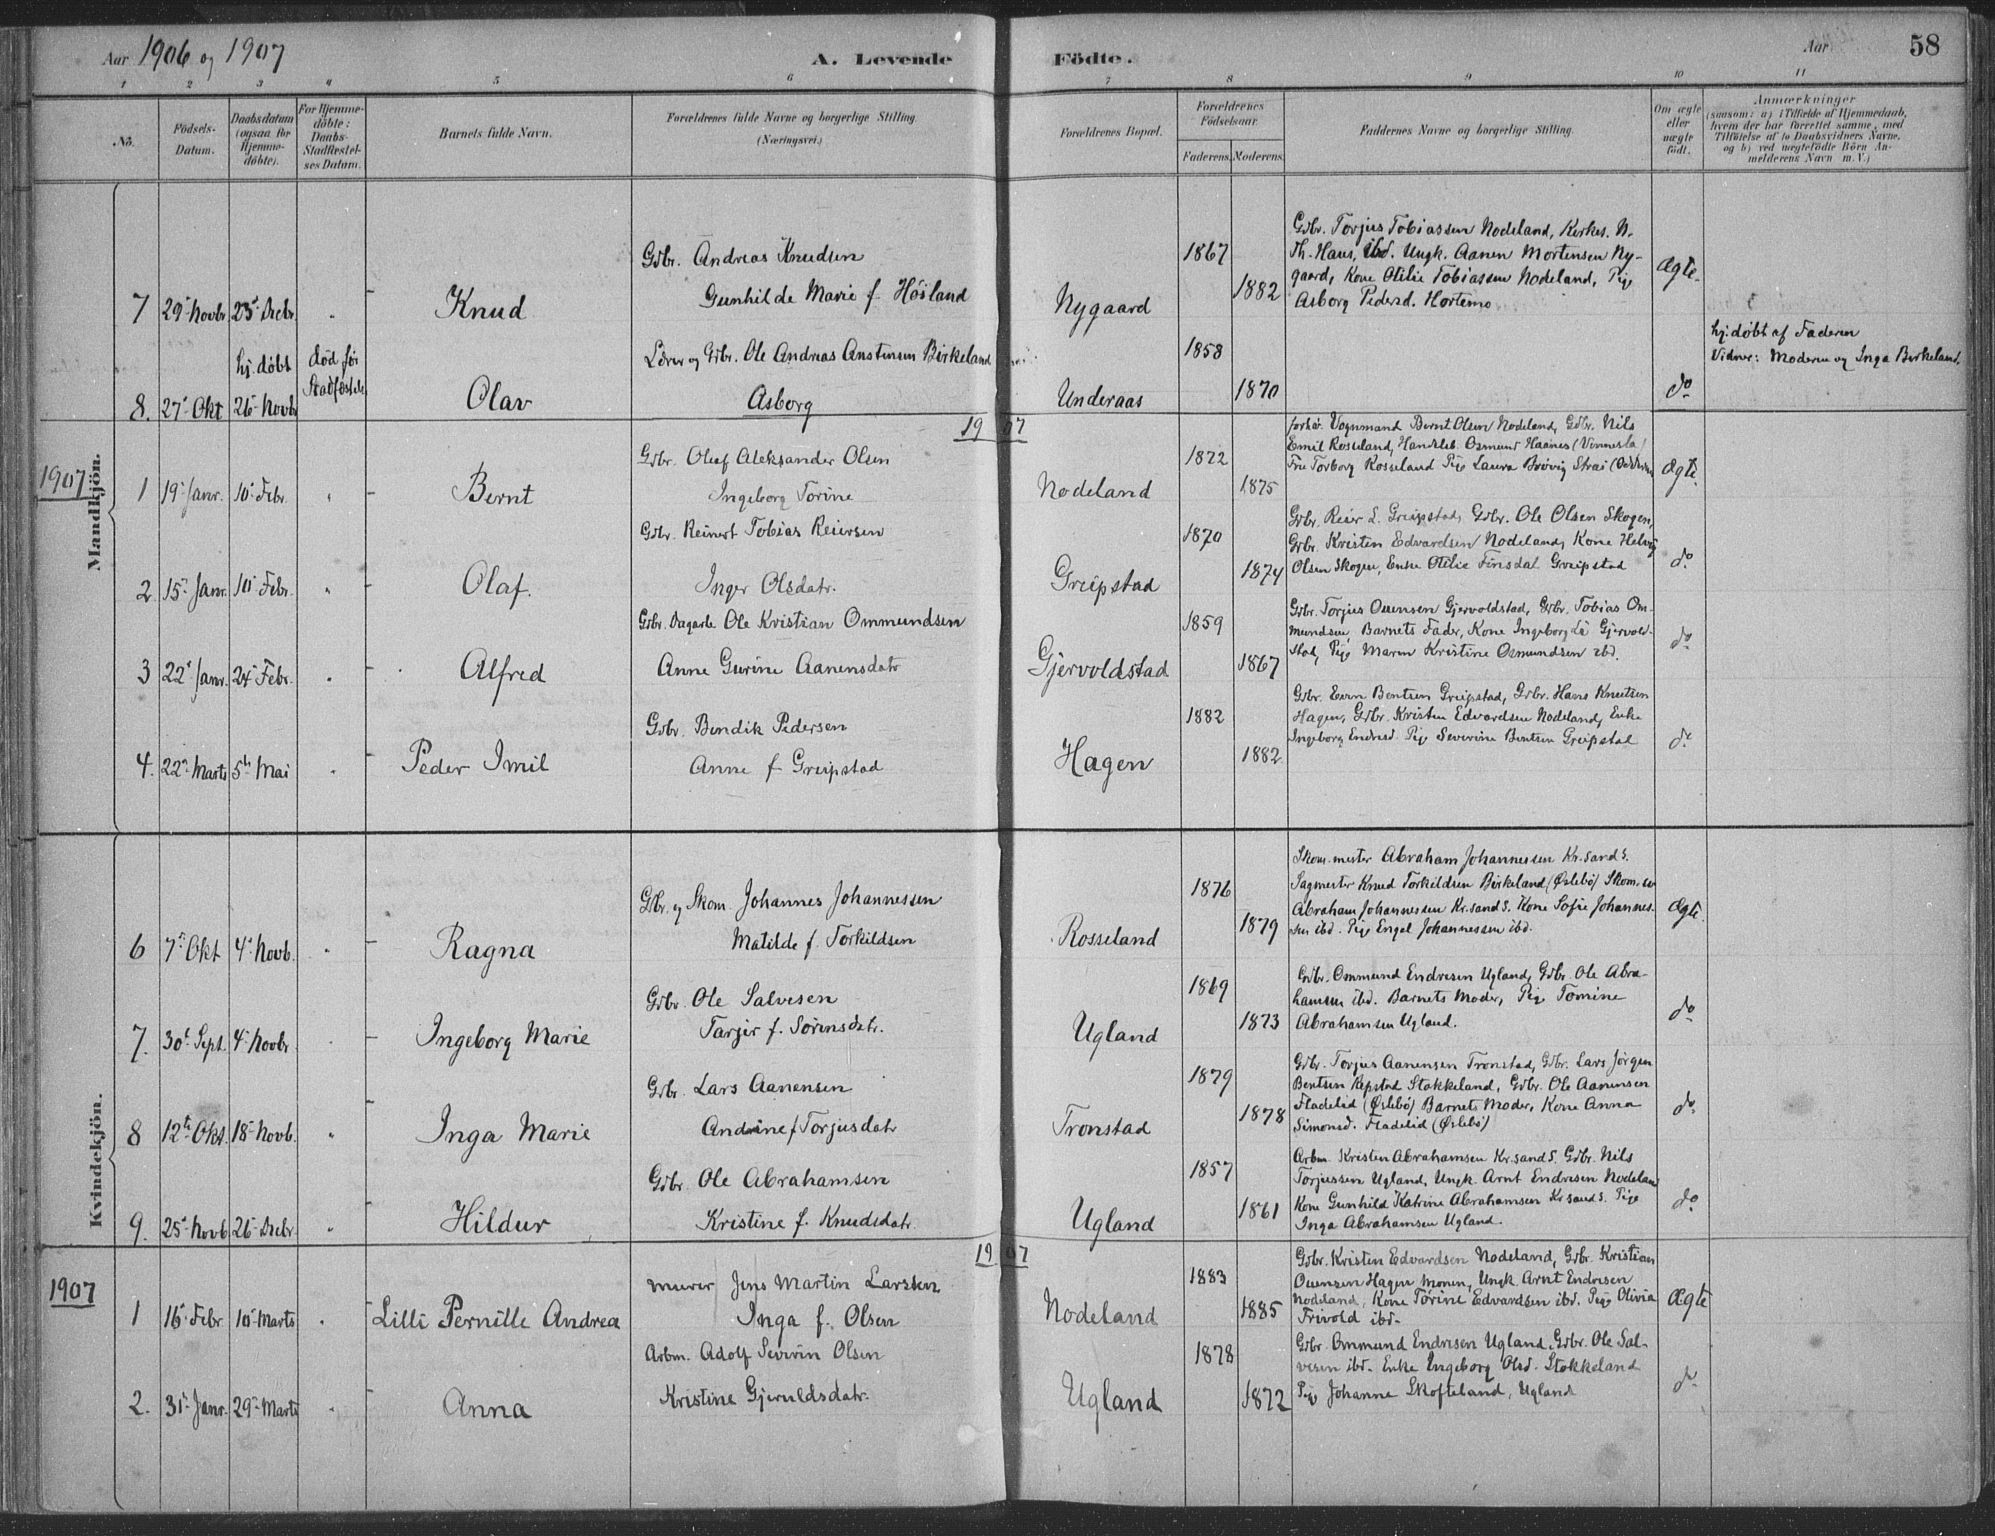 Aar 1906 og 1907
A. Levende Födte.
Aar
58
1 2 3 4 5 6 7 8 9 10 11
No.
Födsels-Datum.
Daabsdatum (ogsaa for Hjemmedöbte).
For Hjemmedöbte: Daabs-Stadfæstelses Datum.
Barnets fulde Navn.
Forældrenes fulde Navne og borgerlige Stilling (Næringsvei.)
Forældrenes Bopæl.
Forældrenes Födselsaar.
Faderens. Moderens.
Faddernes Navne og borgerlige Stilling.
Om ægte eller uægte födt.
Anmærkninger
(saasom: a) i Tilfælde af Hjemmedaab, hvem der har forrettet samme, med Tilföielse af to Daabsvidners Navne, og b) ved uægtefödte Börn Anmelderens Navn m. V.)
Mandkjön.
7 29' Novbr. 23' Decbr. " Knud
Gdbr. Andreas Knudsen
Gunhilde Marie f. Hösland
Nygaard 1867 1882
Gdbr. Torjus Tobiassen Nodeland, Kirkes. N.
Th. Haus, ibd. Ungk. Aanen Mortensen Ny-
gaard, Kone Otilie Tobiassen Nodeland, Pige
Asborg Pedersd. Hortemo
Ægte.
8. 27' Okt hj. döbt 26' Novb död før Stadfæstels. Olav
Lærer og Gdbr. Ole Andreas Anstensen Birkeland
Asborg
Underaas 1858 1870
do
hj. døbt af Faderen
Vidner: Moderen og Inga Birkeland.
1907
19 07
1 19' Janr. 10' Febr. " Bernt
Gdbr. Oluf Aleksander Olsen
Ingeborg Torine
Nodeland 1872 1875
forhv. Vognmand Bernt Olsen Nodeland, Gdbr. Nils
Emil Rosseland, Handelsb. Osmund Haanes (Vennesla)
Fru Torborg Rosseland Pige Laura Brøvig Strai
Ægte.
2 15' Janr. 10' Febr. " Olaf.
Gdbr. Reinert Tobias Reiersen
Inger Olsdatr.
Greipstad 1870 1874
Gdbr. Reier L. Greipstad, Gdbr. Ole Olsen Skogen,
Gdbr. Kristen Edvardsen Nodeland, Kone Helvig
Olsen Skogen, Enke Otilie Finsdal Greipstad
do
3 22' Janr. 24' Febr. " Alfred
Gdbr. Dagarb. Ole Kristian Ommundsen
Anne Gurine Aanensdatr
Gjervoldstad 1859 1867
Gdbr. Torjus Ouensen Gjervoldstad, Gdbr. Tobias Om-
mundsen, Barnets Fader, Kone Ingeborg Gjervold-
stad, Pige Maren Kristine Osmundsen ibd.
do
4. 22' Marts 5te Mai " Peder Imil
Gdbr. Bendik Pedersen
Anne f Greipstad
Hagen 1882 1882
Gdbr. Even Bentsen Greipstad, Gdbr. Hans Knutsen
Hagen, Gdbr. Kristen Edvardsen Nodeland, Enke
Ingeborg Endresd. Pige Severine Bentsen Greipstad
do
Kvindekjön.
6 7' Okt 4' Novb. " Ragna
Gdbr. og Skom. Johannes Johannessen
Matilde f. Torkildsen
Rosseland 1876 1879
Skom. mester Abraham Johannessen Kr.sand S.
Sagmester Knud Torkildsen Birkeland (Øslebö) Skom.
Abraham Johannessen Kr.sand S. Kone Sofie Johannes-
sen ibd. Pige Engel Johannessen ibd.
Ægte.
7. 30' Sept. 4' Novbr. Ingeborg Marie
Gdbr. Ole Salvesen
Tarjer f. Sörensdatr.
Ugland 1869 1873
Gdbr. Ommund Endresen Ugland, Gdbr. Ole Abra-
hamsen ibd. Barnets Moder, Pige Tomine
Abrahamsen Ugland.
do
8 12te Okt. 18' Novb. " Inga Marie
Gdbr. Lars Aanensen
Andrine f Torjusdatr
Tronstad 1879 1878
Gdbr. Torjus Aanensen Tronstad, Gdbr. Lars Jörgen
Bentsen Repstad Stokkeland, Gdbr. Ole Aanensen
Fladelid (Øslebö) Barnets Moder, Kone Anna
Simonsd. Fladelid (Øslebö)
do
9. 25' Novb. 26' Decbr. " Hildur
Gdbr. Ole Abrahamsen
Kristine f. Knudsdatr.
Ugland 1857 1861
Arbm. Kristen Abrahamsen Kr.sand S. Gdbr. Nils
Torjussen Ugland, Ungk. Arnt Endresen Nodeland
Kone Gunhild Katrine Abrahamsen Kr.sand S. Pige
Inga Abrahamsen Ugland.
do
1907
19 07
1 16' Febr. 10' Marts " Lilli Pernille Andrea
Murer Jens Martin Larssen
Inga f. Olsen
Nodeland 1883 1885
Gdbr. Kristen Edvardsen Nodeland, Gdbr. Kristian
Ouensen Hagen Monen, Ungk. Arnt Endresen
Nodeland, Kone Törine Edvardsen ibd. Pige Olivia
Frivold ibd.
Ægte
2. 31' Janr. 29' Marts " Anna
Arbm. Adolf Severin Olsen
Kristine Gjeruldsdatr.
Ugland 1878 1872
Gdbr. Ommund Endresen Ugland, Gdbr. Ole Sal-
vesen ibd. Enke Ingeborg Olsd. Stokkeland
Pige Johanne Skofteland, Ugland
do